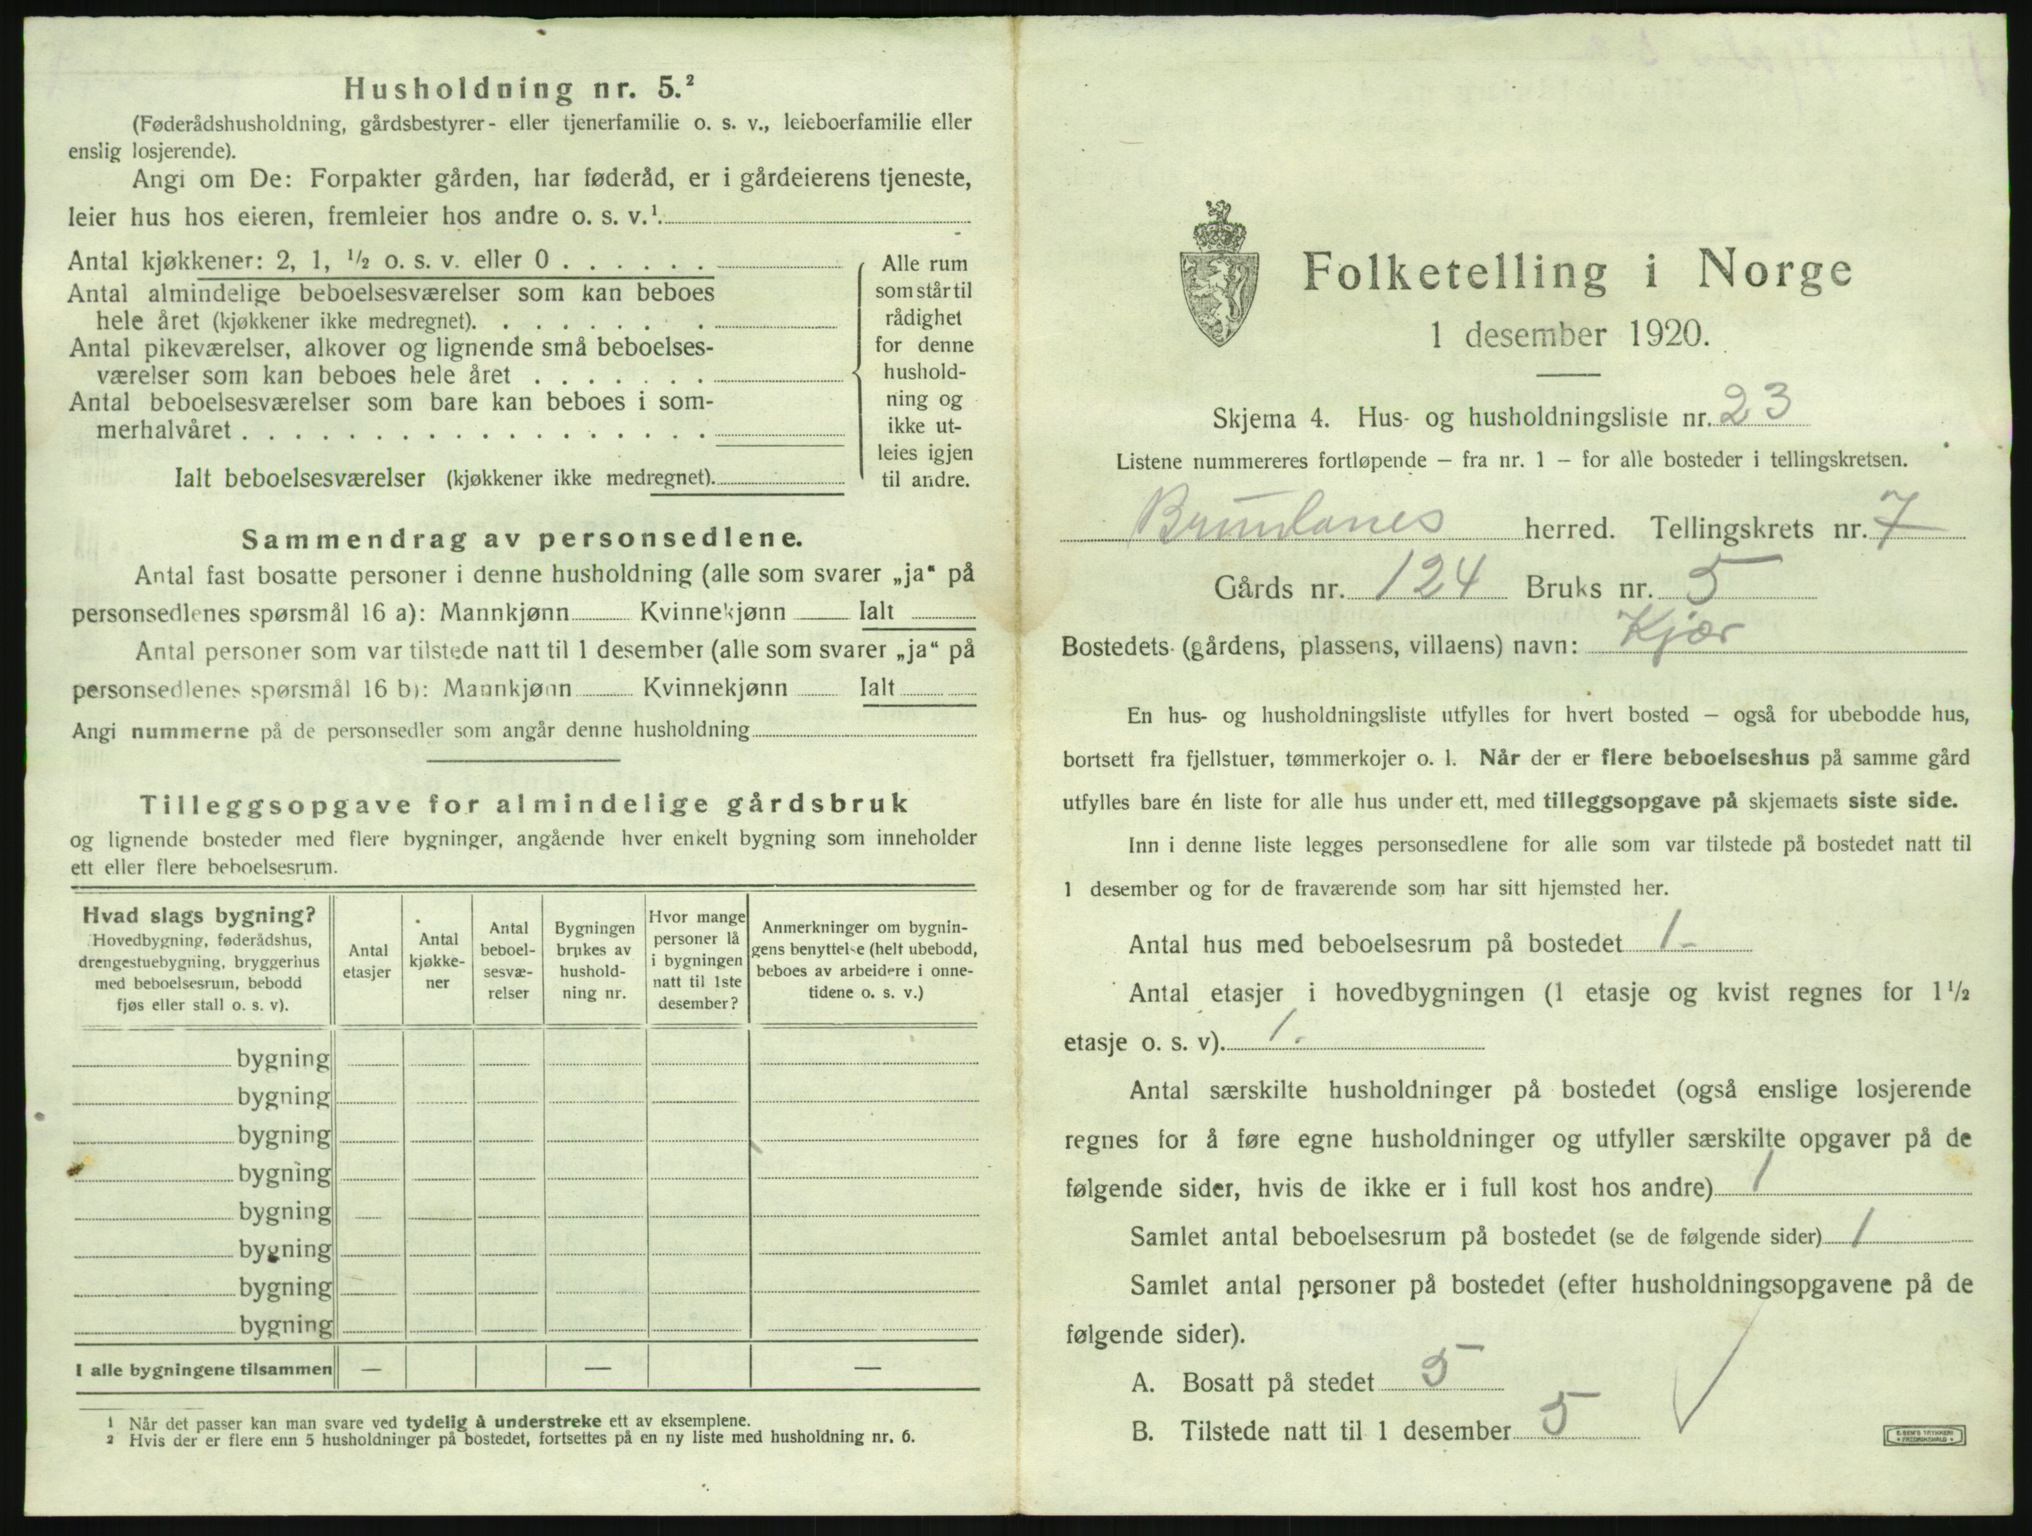 Husholdning nr. 5.²
(Føderådshusholdning, gårdsbestyrer- eller tjenerfamilie o. s. v., leieboerfamilie eller
enslig losjerende).
Angi om De: Forpakter gården, har føderåd, er i gårdeierens tjeneste,
leier hus hos eieren, fremleier hos andre o. s. v.¹
Antal kjøkkener: 2, 1, ½ o. s. v. eller 0 . . . . . .
Antal almindelige beboelsesværelser som kan beboes
hele året (kjøkkener ikke medregnet). . . . . . . . .
Antal pikeværelser, alkover og lignende små beboelses-
værelser som kan beboes hele året . . . . . . .
Antal beboelsesværelser som bare kan beboes i som-
merhalvåret . . . . . . . . . . . . . . . . . .
Ialt beboelsesværelser (kjøkkener ikke medregnet).
Alle rum
som står til
rådighet
for denne
hushold-
ning og
ikke ut-
leies igjen
til andre.
Sammendrag av personsedlene.
Antal fast bosatte personer i denne husholdning (alle som svarer „ja“ på
personsedlenes spørsmål 16 a): Mannkjønn Kvinnekjønn Ialt
Antal personer som var tilstede natt til 1 desember (alle som svarer „ja“ på
personsedlenes spørsmål 16 b): Mannkjønn Kvinnekjønn Ialt
Angi nummerne på de personsedler som angår denne husholdning
Tilleggsopgave for almindelige gårdsbruk
og lignende bosteder med flere bygninger, angående hver enkelt bygning som inneholder
ett eller flere beboelsesrum.
Hvad slags bygning?
Hovedbygning, føderådshus,
drengestuebygning, bryggerhus
med beboelsesrum, bebodd
fjøs eller stall o. s. v).
Antal
etasjer
Antal
kjøkke-
ner
Antal
beboel-
sesvæ-
relser
Bygningen
brukes av
hushold-
ning nr.
Hvor mange
personer lå
i bygningen
natt til 1ste
desember?
Anmerkninger om bygnin-
gens benyttelse (helt ubebodd,
beboes av arbeidere i onne-
tidene o. s. v.)
bygning
bygning
bygning
bygning
bygning
bygning
bygning
bygning
I alle bygningene tilsammen — — —
¹ Når det passer kan man svare ved tydelig å understreke ett av eksemplene.
² Hvis der er flere enn 5 husholdninger på bostedet, fortsettes på en ny liste med husholdning nr. 6.
Folketelling i Norge
1 desember 1920.
Skjema 4. Hus- og husholdningsliste nr. 23
Listene nummereres fortløpende — fra nr. 1 — for alle bosteder i tellingskretsen.
Brunlanes herred. Tellingskrets nr. 7
Gårds nr. 124 Bruks nr. 5
Bostedets (gårdens, plassens, villaens) navn: Kjær
En hus- og husholdningsliste utfylles for hvert bosted — også for ubebodde hus,
bortsett fra fjellstuer, tømmerkojer o. l. Når der er flere beboelseshus på samme gård
utfylles bare én liste for alle hus under ett, med tilleggsopgave på skjemaets siste side.
Inn i denne liste legges personsedlene for alle som var tilstede på bostedet natt til
1 desember og for de fraværende som har sitt hjemsted her.
Antal hus med beboelsesrum på bostedet 1.-
Antal etasjer i hovedbygningen (1 etasje og kvist regnes for 1½
etasje o. s. v). 1.
Antal særskilte husholdninger på bostedet (også enslige losjerende
regnes for å føre egne husholdninger og utfyller særskilte opgaver på de
følgende sider, hvis de ikke er i full kost hos andre) 1
Samlet antal beboelsesrum på bostedet (se de følgende sider) 1
Samlet antal personer på bostedet (efter husholdningsopgavene på de
følgende sider).
A. Bosatt på stedet 5
B. Tilstede natt til 1 desember 5